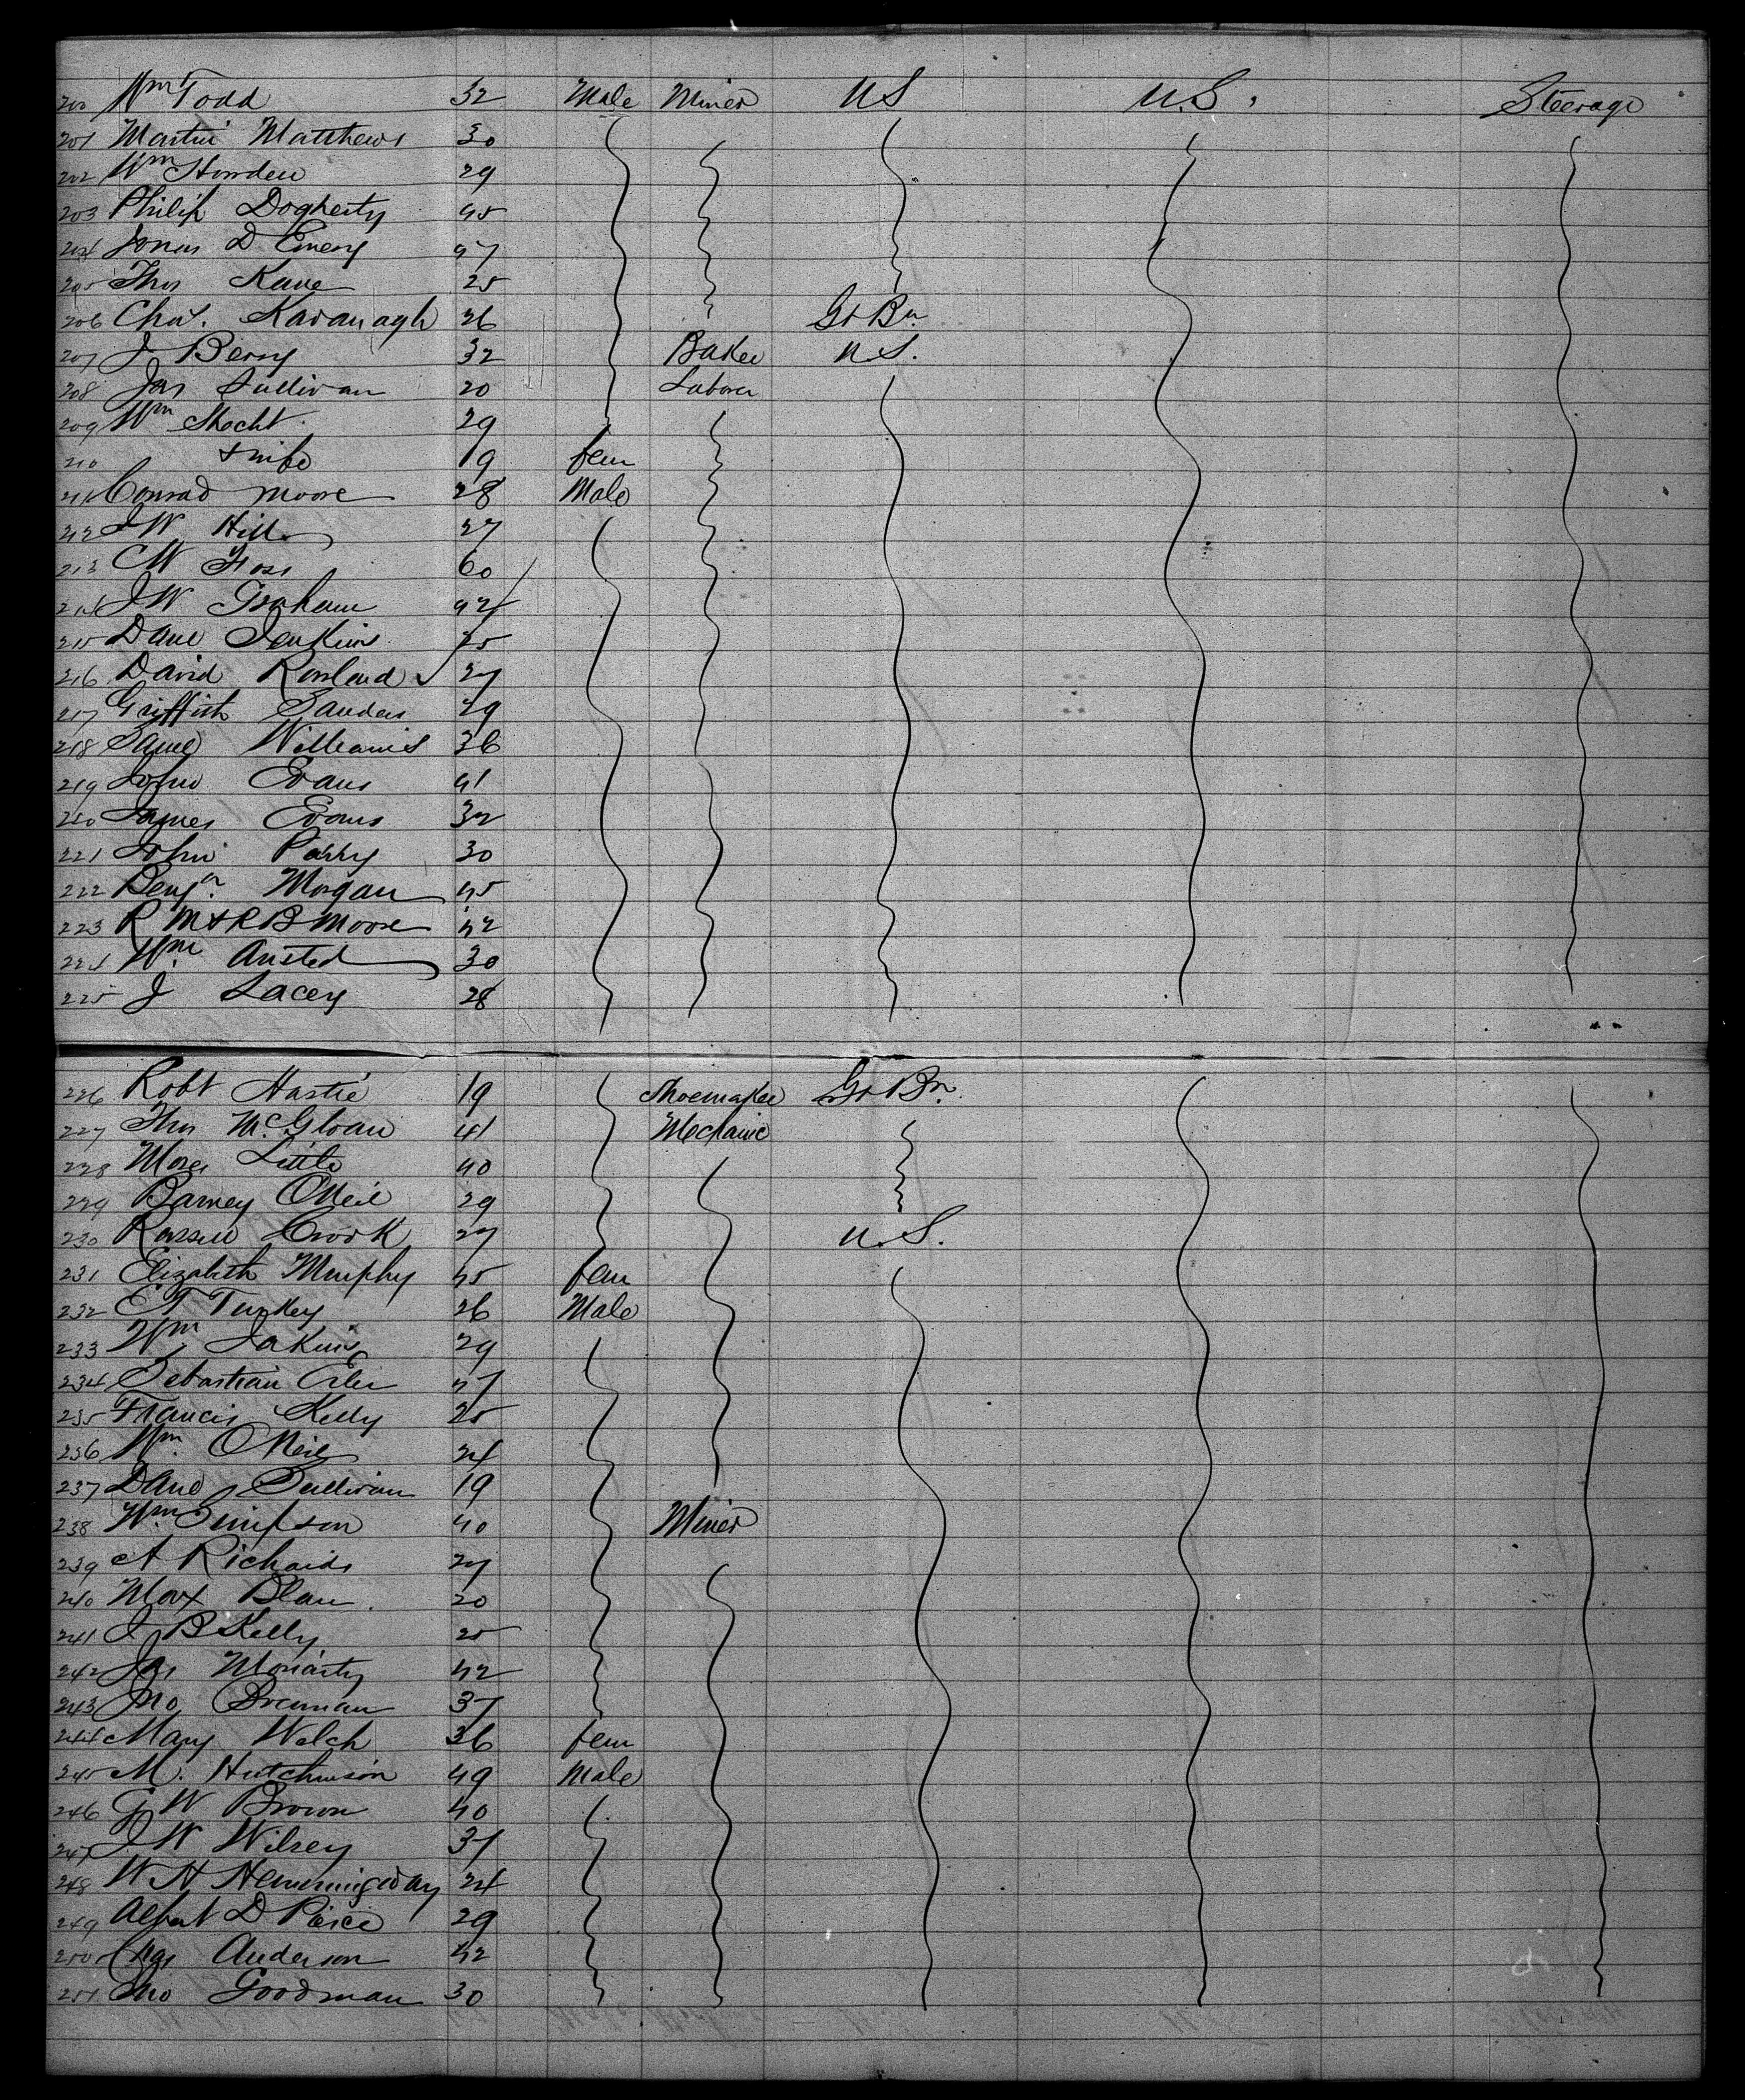 200 Wm Todd 32 Male Miner US U.S. Steerage
201 Martin Matthews 30
202 Wm Howden 29
203 Philip Dogherty 45
204 Jonas D Emery 47
205 Thos Kane 25
206 Chas. Kavanagh 26 Gt Bn
207 J Berry 32 Baker U.S.
208 Jas Sullivan 20 Laborer
209 Wm Shecht 29
210 & wife 19 fem
211 Conrad Moore 28 Male
212 J W Hill 27
213 C W Foss 60
214 J W Graham 42
215 Danl Jenkins 25
216 David Rowland 27
217 Griffith Sanders 29
218 Saml Williams 36
219 John Evans 41
220 James Evans 32
221 John Parry 30
222 Benjn. Morgan 45
223 R M & R B Moore 42
224 Wm. Austed 30
225 J Lacey 28
226 Robt Hastie 19 Shoemaker Gt Bn.
227 Thos McGloan 41 Mechanic
228 Moses Little 40
229 Barney O'Neil 29
230 Russell Crook 27 U.S.
231 Elizabeth Murphy 45 fem
232 Turkey 26 Male
233 Wm Jakins 29
234 Sebastian 47
235 Francis Kelly 25
236 Wm. O'Neil 24
237 Danl Sullivan 19
238 Wm Simpson 40 Miner
239 A Richards 27
240 Max Blau 20
241 J B Kelly 25
242 Jas Moriarty 42
243 Jno Brennan 37
244 Mary Welch 36 fem
245 M. Hutchinson 49 Male
246 G W Brown 40
247 J W Wilsey 37
248 W H Hemmingway 24
249 Albert D Peirce 29
250 Chas Anderson 42
251 Jno Goodman 30